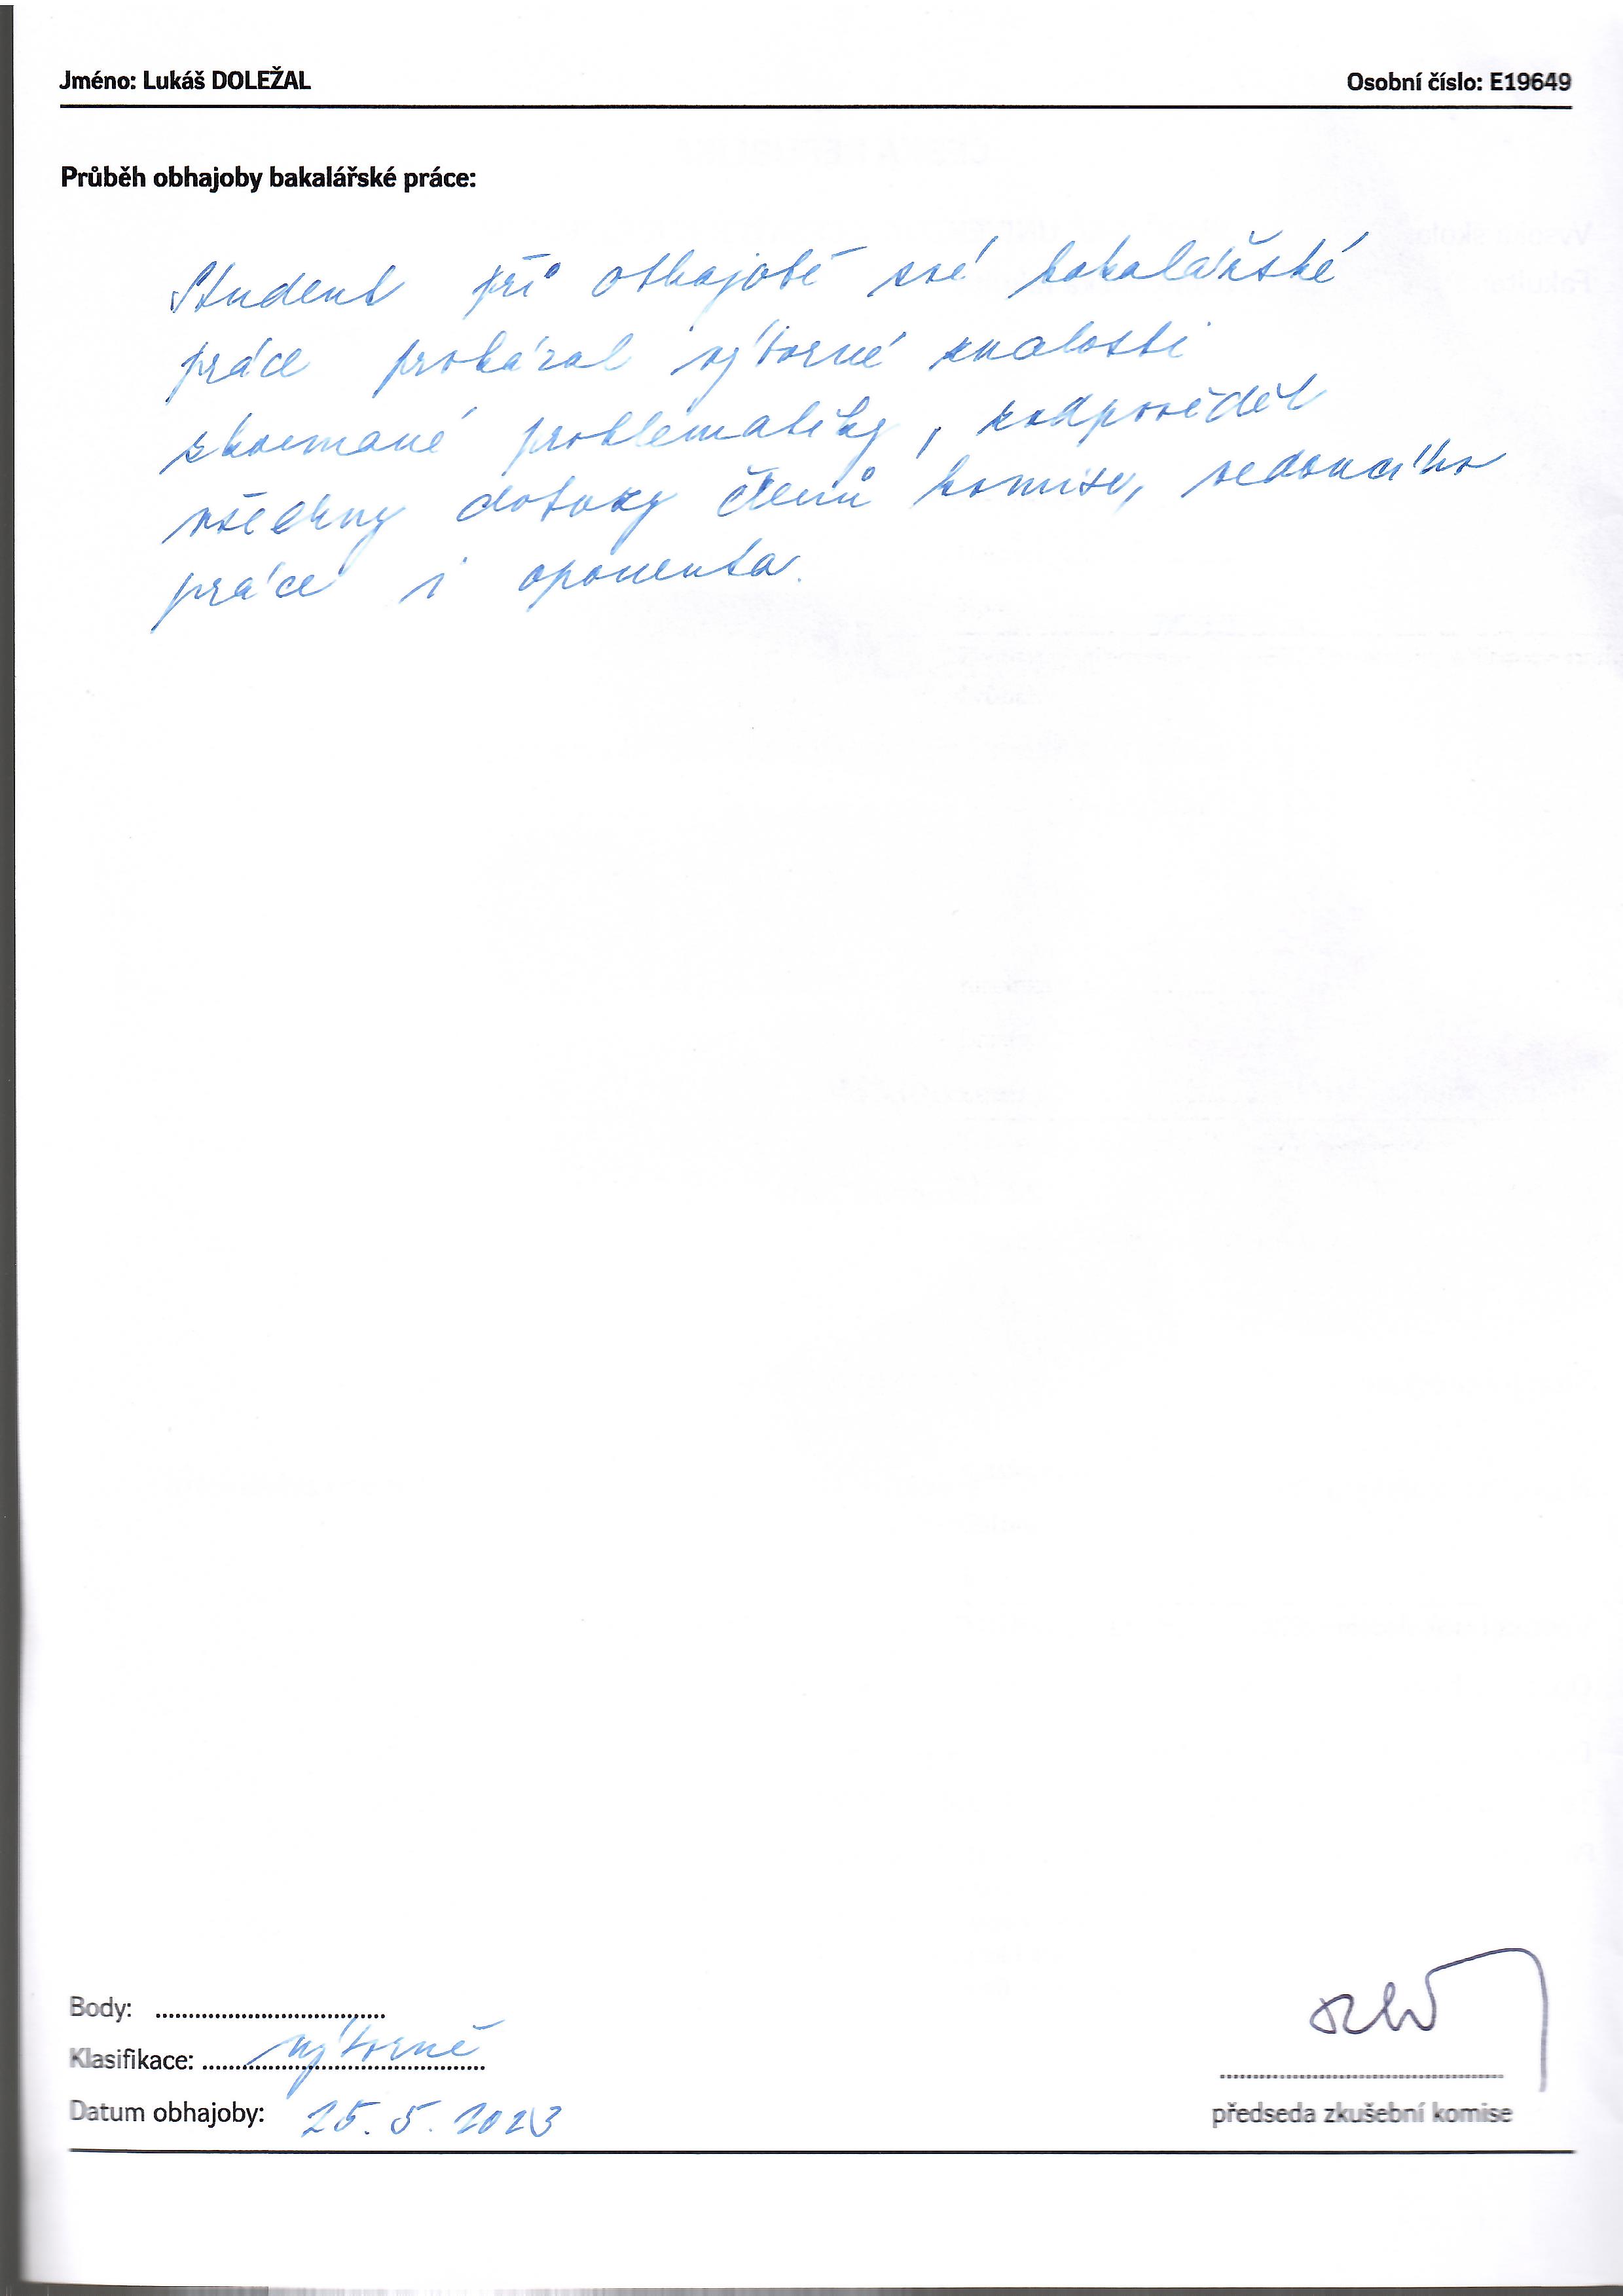 Jméno: Lukáš DOLEŽAL
Osobní číslo: E19649
Průběh obhajoby bakalářské práce:
Student při obhajobě své bakalářské
práce prokázal výborné znalosti
zkoumané problematiky, zodpověděl
všechny dotazy členů komise, vedoucího
práce i oponenta.
Body: ...................................
Klasifikace: výborně
Datum obhajoby: 25. 5. 2023
předseda zkušební komise